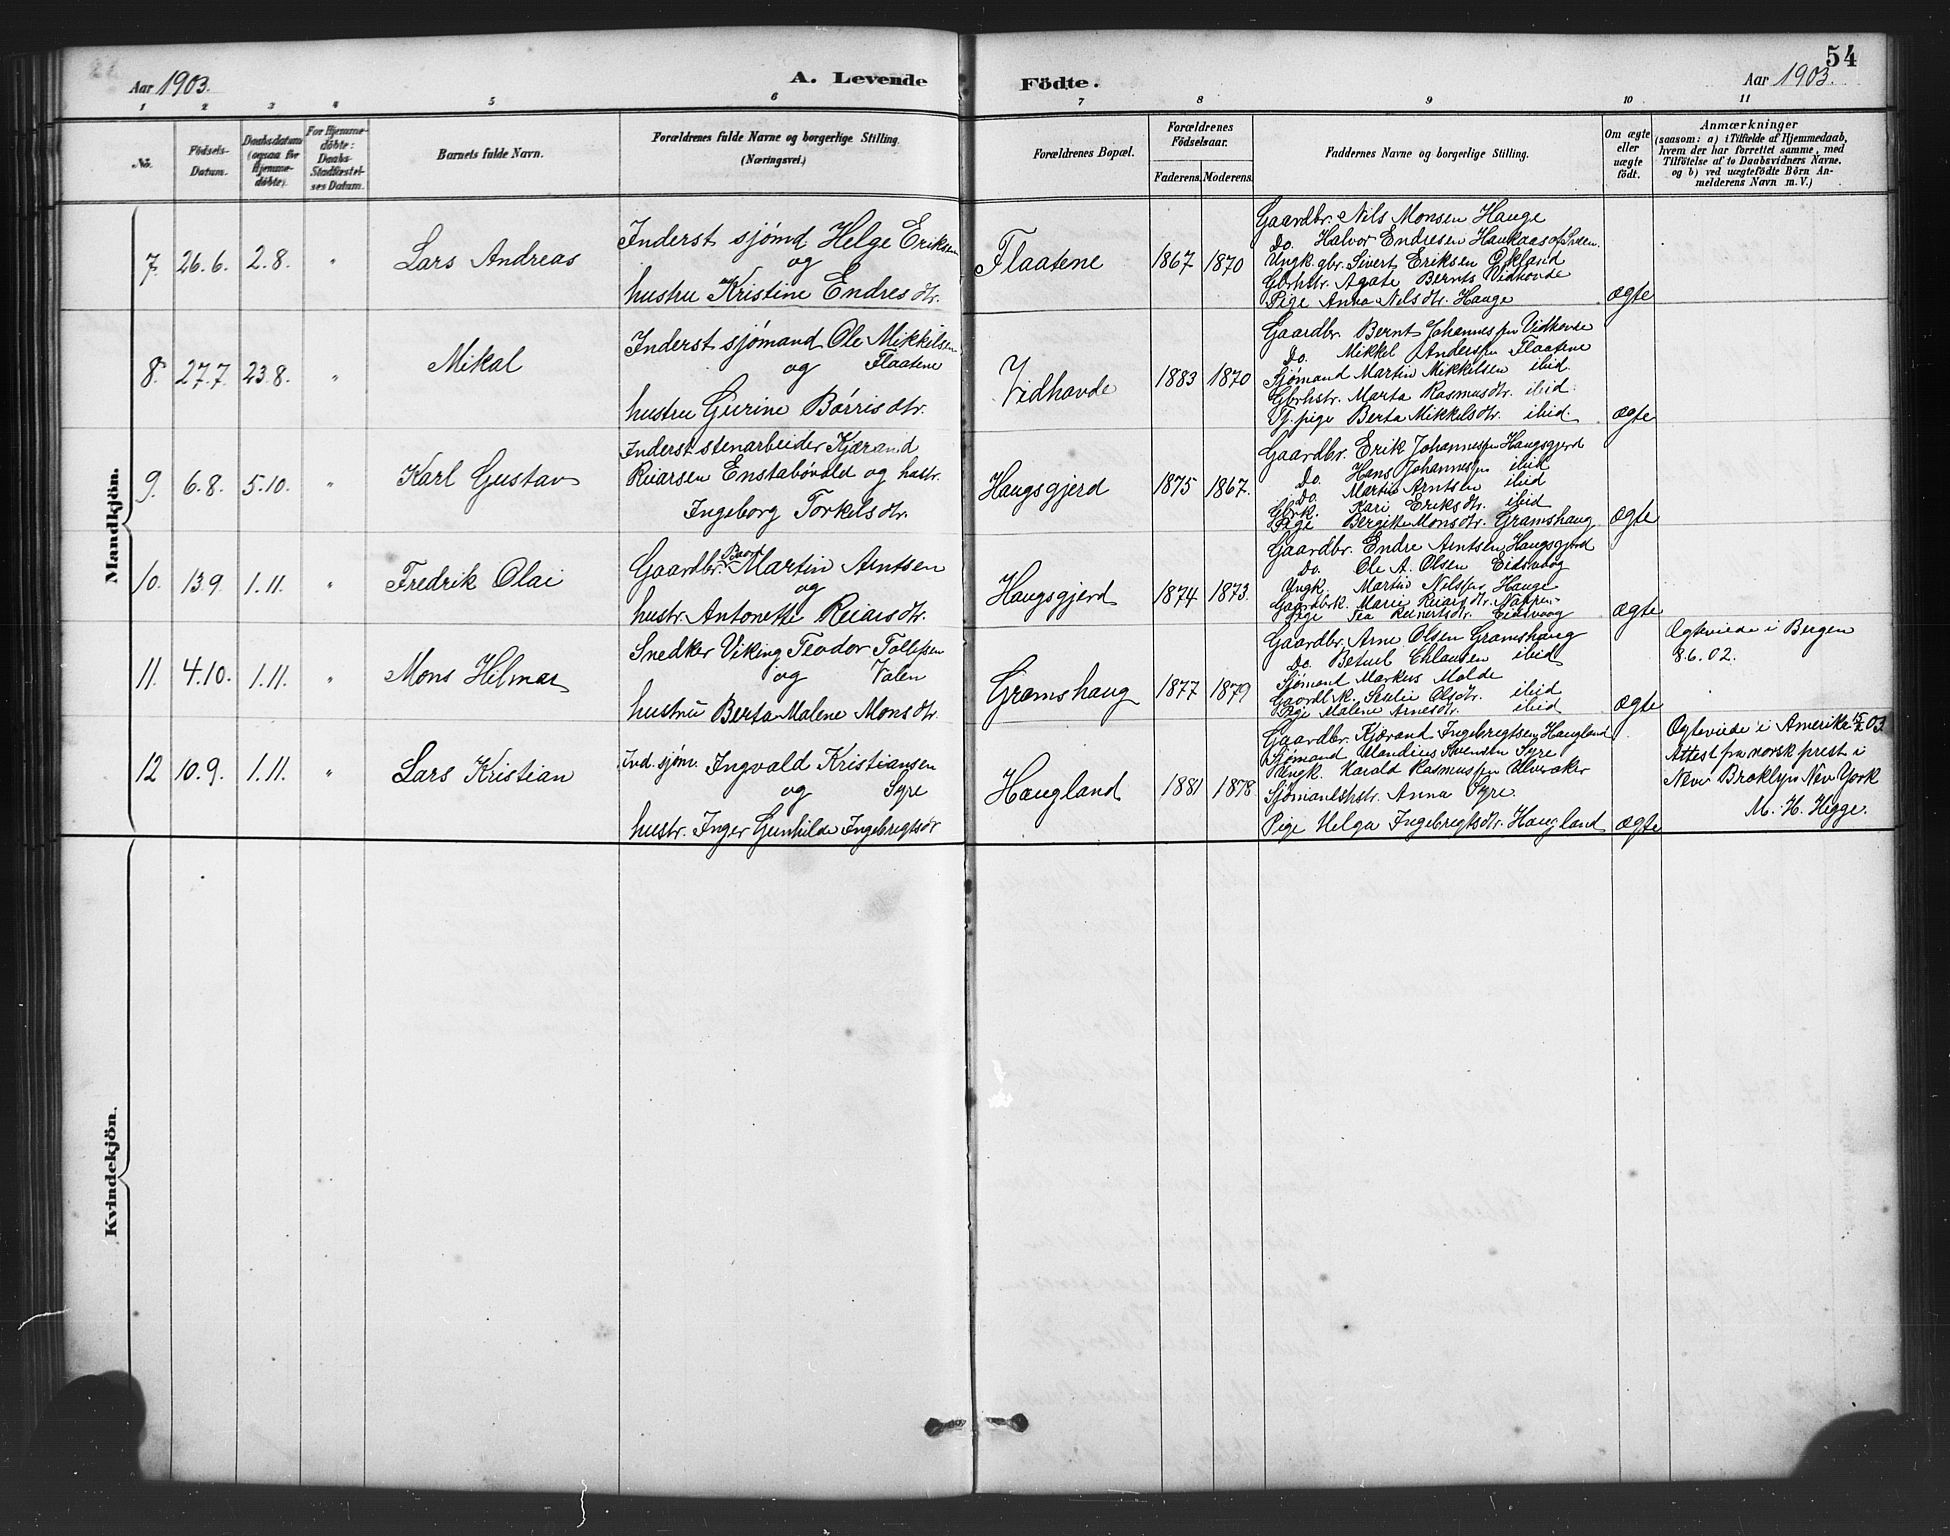 54
Aar 1903.
A. Levende
Födte.
Aar 1903.
1 2 3 4 5 6 7 8 9 10 11
No.
Födsels-
Datum.
Daabsdatum
(ogsaa for
Hjemme-
døbte).
For Hjemme-
døbte:
Daabs-
Stadfæstel-
ses Datum.
Barnets fulde Navn.
Forældrenes fulde Navne og borgerlige Stilling.
(Næringsvei.)
Forældrenes Bopæl.
Forældrenes
Fødselsaar.
Faderens. Moderens.
Faddernes Navne og borgerlige Stilling.
Om ægte
eller
uægte
født.
Anmærkninger
(saasom: a) i Tilfælde af Hjemmedaab,
hvem der har forrettet samme, med
Tilføielse af to Daabsvidners Navne.
og b) ved uægtefødte Børn An-
melderens Navn m. V.)
Mandkjön.
7. 26.6. 2.8. " Lars Andreas
Inderst sjömd Helge Eriksen
og
hustru Kristine Endresdtr.
Flaatene 1867 1870
Gaardbr. Nils Monsen Hauge
Do. Halvor Endresen Haukaas
Ungk. gbr. Sivert Eriksen Økland
Gbrhstr. Agate Bernts Vidhovde
Pige Anna Nilsdtr. Hauge
ægte
8. 27.7. 23.8. " Mikal
Inderst sjömand Ole Mikkilsen
og Flaatene
hustru Gurine Børrisdtr.
Vidhovde 1883 1870
Gaardbr. Bernt Johannessen Vidhovde
Do. Mikkel Anderssen Flaatene
Sjömand Martin Mikkelsen ibid.
Gbrhstr. Marta Rasmusdtr. ibid.
Tj. pige Berta Mikkelsdtr. ibid.
ægte
9. 6.8. 5.10. " Karl Gustav
Inderst stenarbeider Kjærand
Ruarsen Enstabövold og hustr.
Ingeborg Torkelsdtr.
Haugsgjerd 1875 1867.
Gaardbr. Erik Johannessen Haugsgjerd
Do. Hans Johannessen ibid
Do. Martin Arntsen ibid
Gbrk. Kari Eriksdtr. ibid
Pige Bergitte Monsdtr. Gramshaug
ægte
10. 13.9. 1.11. " Fredrik Olai
Gaardbr. Baard Martin Arntsen
og
hustr. Antonette Ruarsdtr.
Haugsgjerd 1874 1873.
Gaardbr. Endre Arntsen Haugsgjerd
Do. Ole A. Olsen Eidsvaag
Ungk. Martin Nilssen Hauge
Gaardbrk. Marie Ruarsdtr.
Pige Tea Reinertsdtr. Eidsvaag
ægte
11. 4.10. 1.11. " Mons Hilmar
Snedker Viking Teodor Tollefsen
og Valen
hustru Berta Malene Monsdtr.
Gramshaug 1877 1879
Gaardbr. Arne Olsen Gramshaug
Do. Betuel Chlausen ibid
Sjömand Markus Molde
Gaardbrk. Olsdtr. ibid
Pige Malene Arnesdtr. ibid
ægte
Ægteviede i Bergen
8.6.02.
12 10.9. 1.11. " Lars Kristian
Ind. sjöm. Ingvald Kristiansen
og Syre
hustr. Inger Gunhilde Ingebregtsdtr
Haugland 1881 1878
Gaardbr. Kjærand Ingebregtsen Haugland
Sjömand Mandius Svendsen Syre
Ungk. Harald Rasmussen Ulveraker
Sjömandshstr. Anna Syre
Pige Helga Ingebregtsdtr. Haugland
ægte
Ægteviede i Amerika 03
Attest fra norsk prest i
New Broklyn New York
M. H. Hegge.
Kvindekjön.